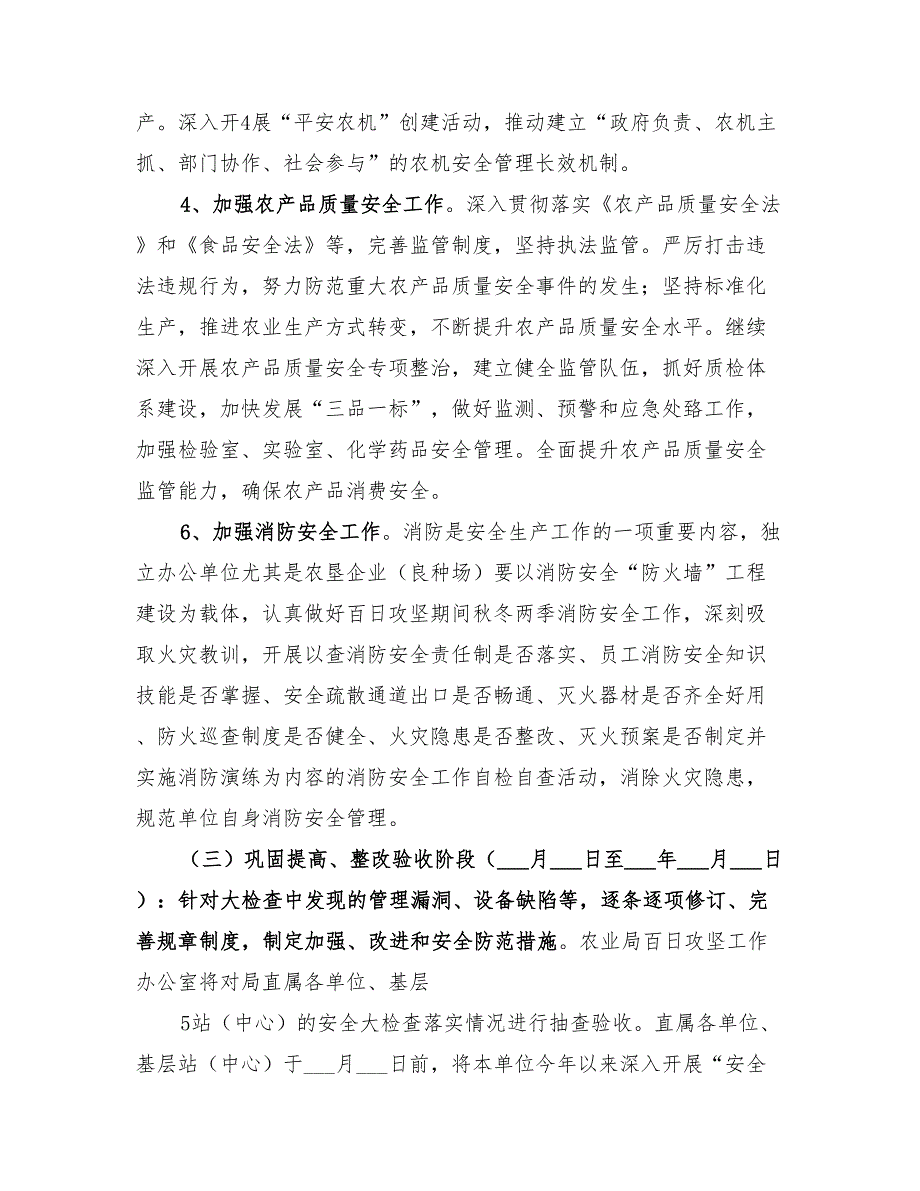 产。深入开4展“平安农机”创建活动，推动建立“政府负责、农机主
抓、部门协作、社会参与”的农机安全管理长效机制。
4、加强农产品质量安全工作。深入贯彻落实《农产品质量安全法
》和《食品安全法》等，完善监管制度，坚持执法监管。严厉打击违
法违规行为，努力防范重大农产品质量安全事件的发生；坚持标准化
生产，推进农业生产方式转变，不断提升农产品质量安全水平。继续
深入开展农产品质量安全专项整治，建立健全监管队伍，抓好质检体
系建设，加快发展“三品一标”，做好监测、预警和应急处臵工作，
加强检验室、实验室、化学药品安全管理。全面提升农产品质量安全
监管能力，确保农产品消费安全。
6、加强消防安全工作。消防是安全生产工作的一项重要内容，独
立办公单位尤其是农垦企业（良种场）要以消防安全“防火墙”工程
建设为载体，认真做好百日攻坚期间秋冬两季消防安全工作，深刻吸
取火灾教训，开展以查消防安全责任制是否落实、员工消防安全知识
技能是否掌握、安全疏散通道出口是否畅通、灭火器材是否齐全好用
、防火巡查制度是否健全、火灾隐患是否整改、灭火预案是否制定并
实施消防演练为内容的消防安全工作自检自查活动，消除火灾隐患，
规范单位自身消防安全管理。
（三）巩固提高、整改验收阶段（___月___日至___年___月___日
）：针对大检查中发现的管理漏洞、设备缺陷等，逐条逐项修订、完
善规章制度，制定加强、改进和安全防范措施。农业局百日攻坚工作
办公室将对局直属各单位、基层
5站（中心）的安全大检查落实情况进行抽查验收。直属各单位、
基层站（中心）于___月___日前，将本单位今年以来深入开展“安全